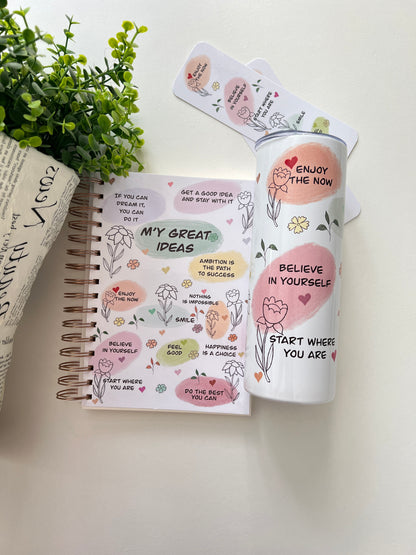 ENJOY
THE NOW
BELIEVE
IN YOURSELF
START WHERE
YOU ARE
SMILE
IF YOU CAN
DREAM IT,
YOU CAN
DO IT
GET A GOOD IDEA
AND STAY WITH IT
M'Y GREAT
IDEAS
AMBITION IS
THE PATH
TO SUCCESS
ENJOY
THE NOW
NOTHING
IS IMPOSSIBLE
SMILE
BELIEVE
IN YOURSELF
FEEL
GOOD
HAPPINESS
IS A CHOICE
START WHERE
YOU ARE
DO THE BEST
YOU CAN
ENJOY
THE NOW
BELIEVE
IN YOURSELF
START WHERE
YOU ARE